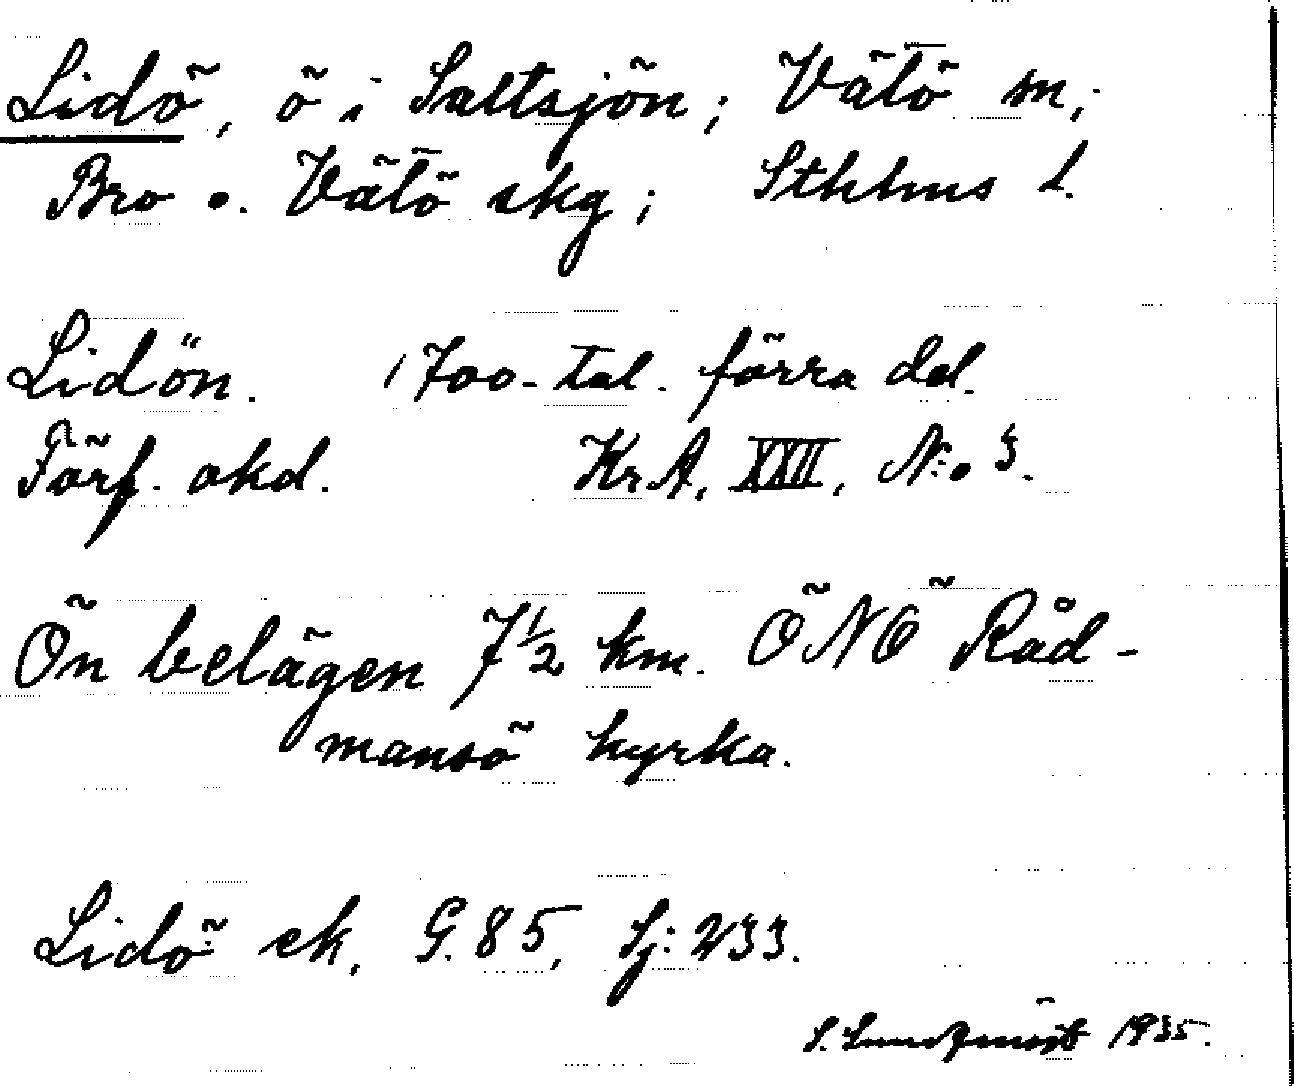 Lidö, ö i Saltsjön; Vätö sn;
Bro o. Vätö skg; Sthlms l.
Lidön. 1700-tal. förra del.
Förf. okd. KrA, XXII, N:o 3.
Ön belägen 7½ km. ÖNÖ Råd-
mansö kyrka.
Lidö ek. G. 85, Sj: 233.
S. Lundqvist 1935.